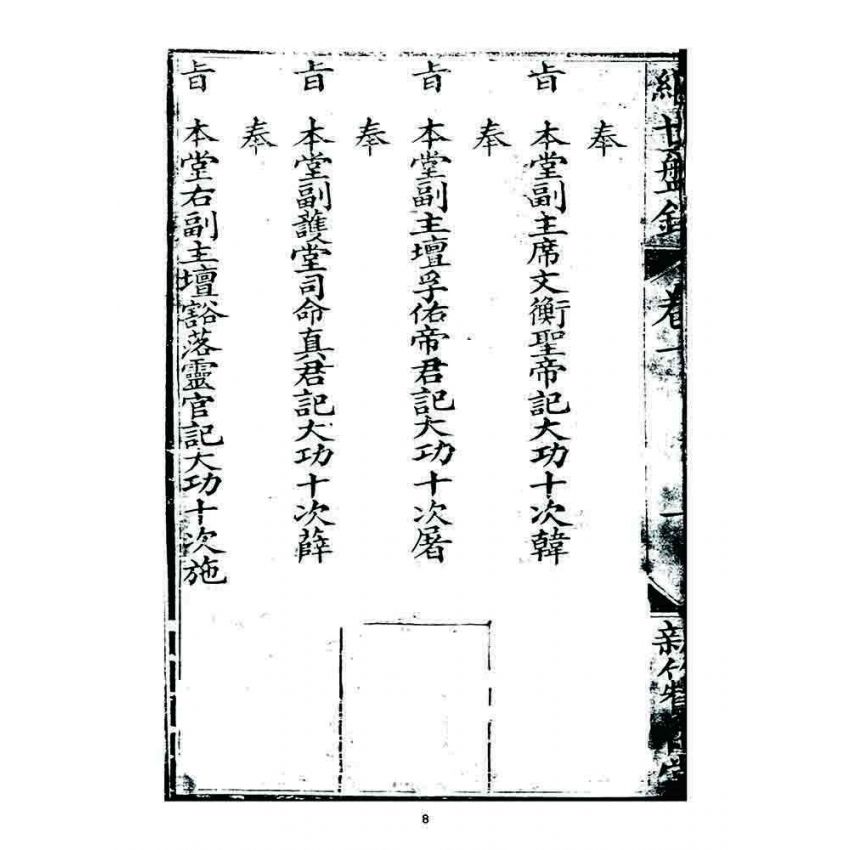 世盤 卷 新竹
奉
旨 本堂副主席文衡聖帝記大功十次韓
奉
旨 本堂副主壇孚佑帝君記大功十次屠
奉
旨 本堂副護堂司命真君記大功十次薛
奉
旨 本堂右副主壇豁落靈官記大功十次施
8